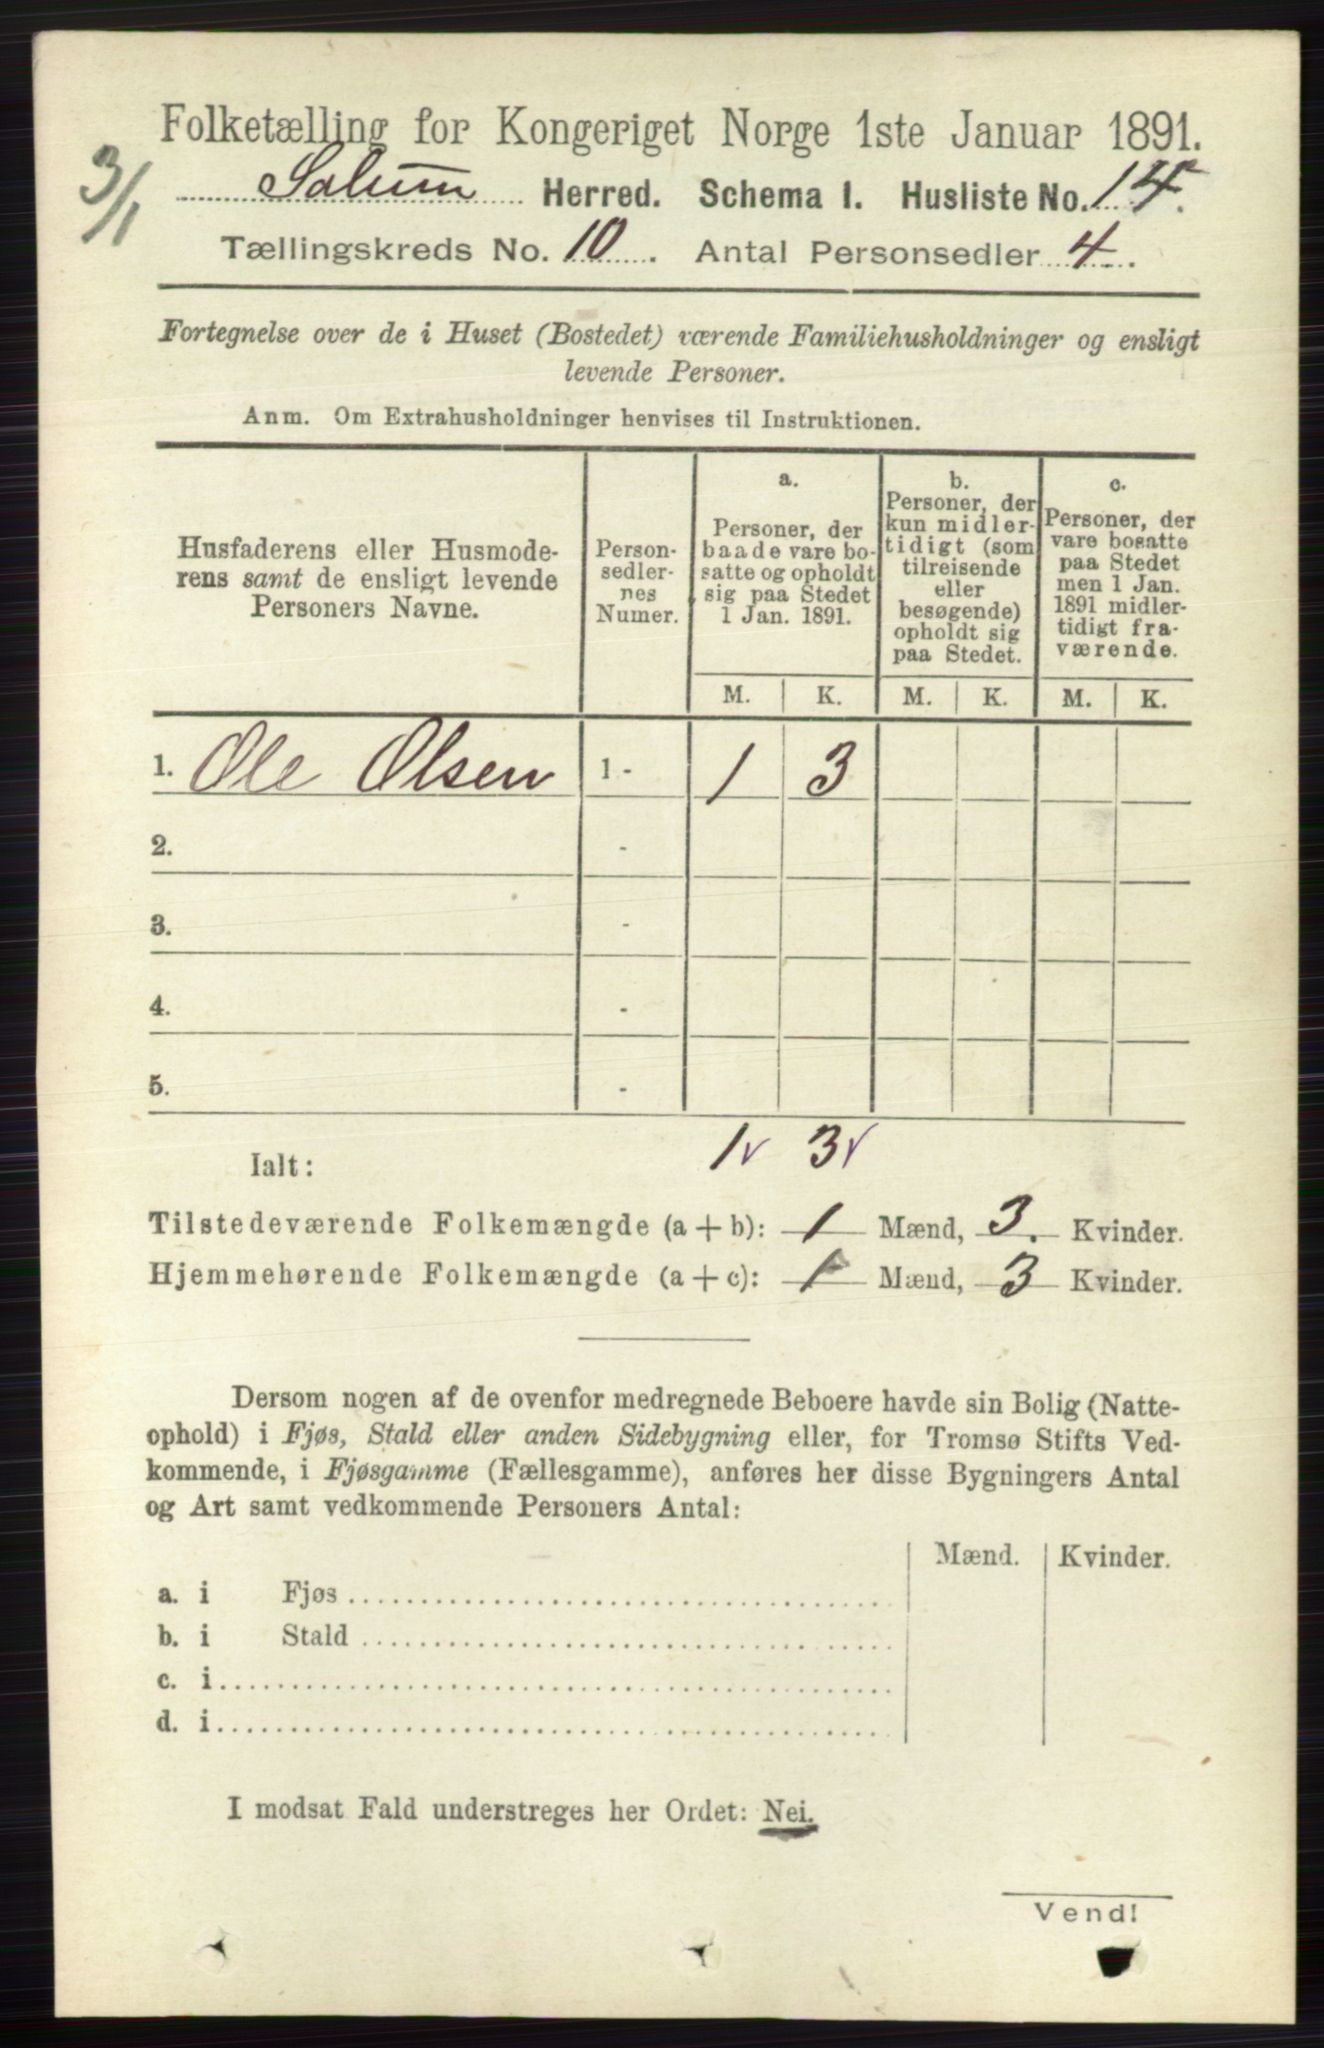 Folketælling for Kongeriget Norge 1ste Januar 1891.
3/1
Solum Herred. Schema I. Husliste No. 14.
Tællingskreds No. 10. Antal Personsedler 4.
Fortegnelse over de i Huset (Bostedet) værende Familiehusholdninger og ensligt
levende Personer.
Anm. Om Extrahusholdninger henvises til Instruktionen.
Husfaderens eller Husmode-
rens samt de ensligt levende
Personers Navne.
Person-
sedler-
nes
Numer.
a.
Personer, der
baade vare bo-
satte og opholdt
sig paa Stedet
1 Jan. 1891.
b.
Personer, der
kun midler-
tidigt (som
tilreisende
eller
besøgende)
opholdt sig
paa Stedet.
c.
Personer, der
vare bosatte
paa Stedet
men 1 Jan.
1891 midler-
tidigt fra-
værende.
M. K. M. K. M. K.
1. Ole Olsen 1 - 1 3
2. -
3. -
4. -
5. -
Ialt: 1 v 3 v
Tilstedeværende Folkemængde (a + b): 1 Mænd, 3. Kvinder.
Hjemmehørende Folkemængde (a + c): 1 Mænd, 3 Kvinder.
Dersom nogen af de ovenfor medregnede Beboere havde sin Bolig (Natte-
ophold) i Fjøs, Stald eller anden Sidebygning eller, for Tromsø Stifts Ved-
kommende, i Fjøsgamme (Fællesgamme), anføres her disse Bygningers Antal
og Art samt vedkommende Personers Antal:
Mænd. Kvinder.
a. i Fjøs
b. i Stald
c. i
d. i
I modsat Fald understreges her Ordet: Nei.
Vend!